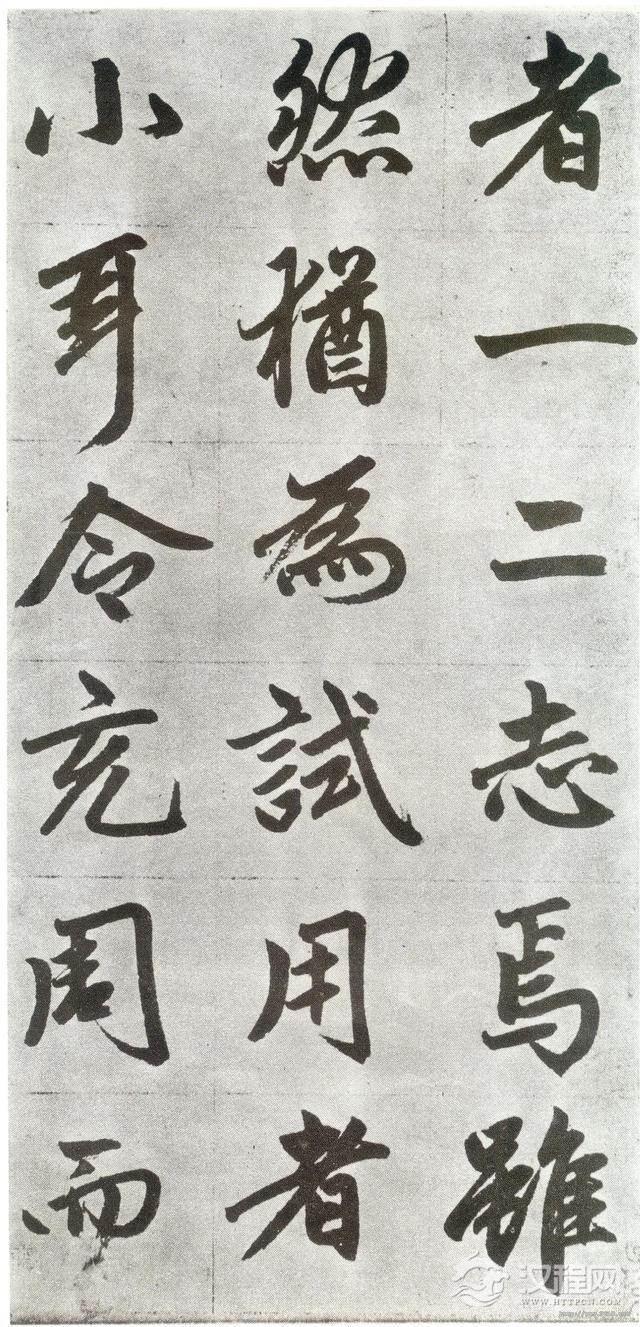 者一二志焉雖
然猶為試用者
小耳令充周而
汉程网
WWW.HTTPCN.COM